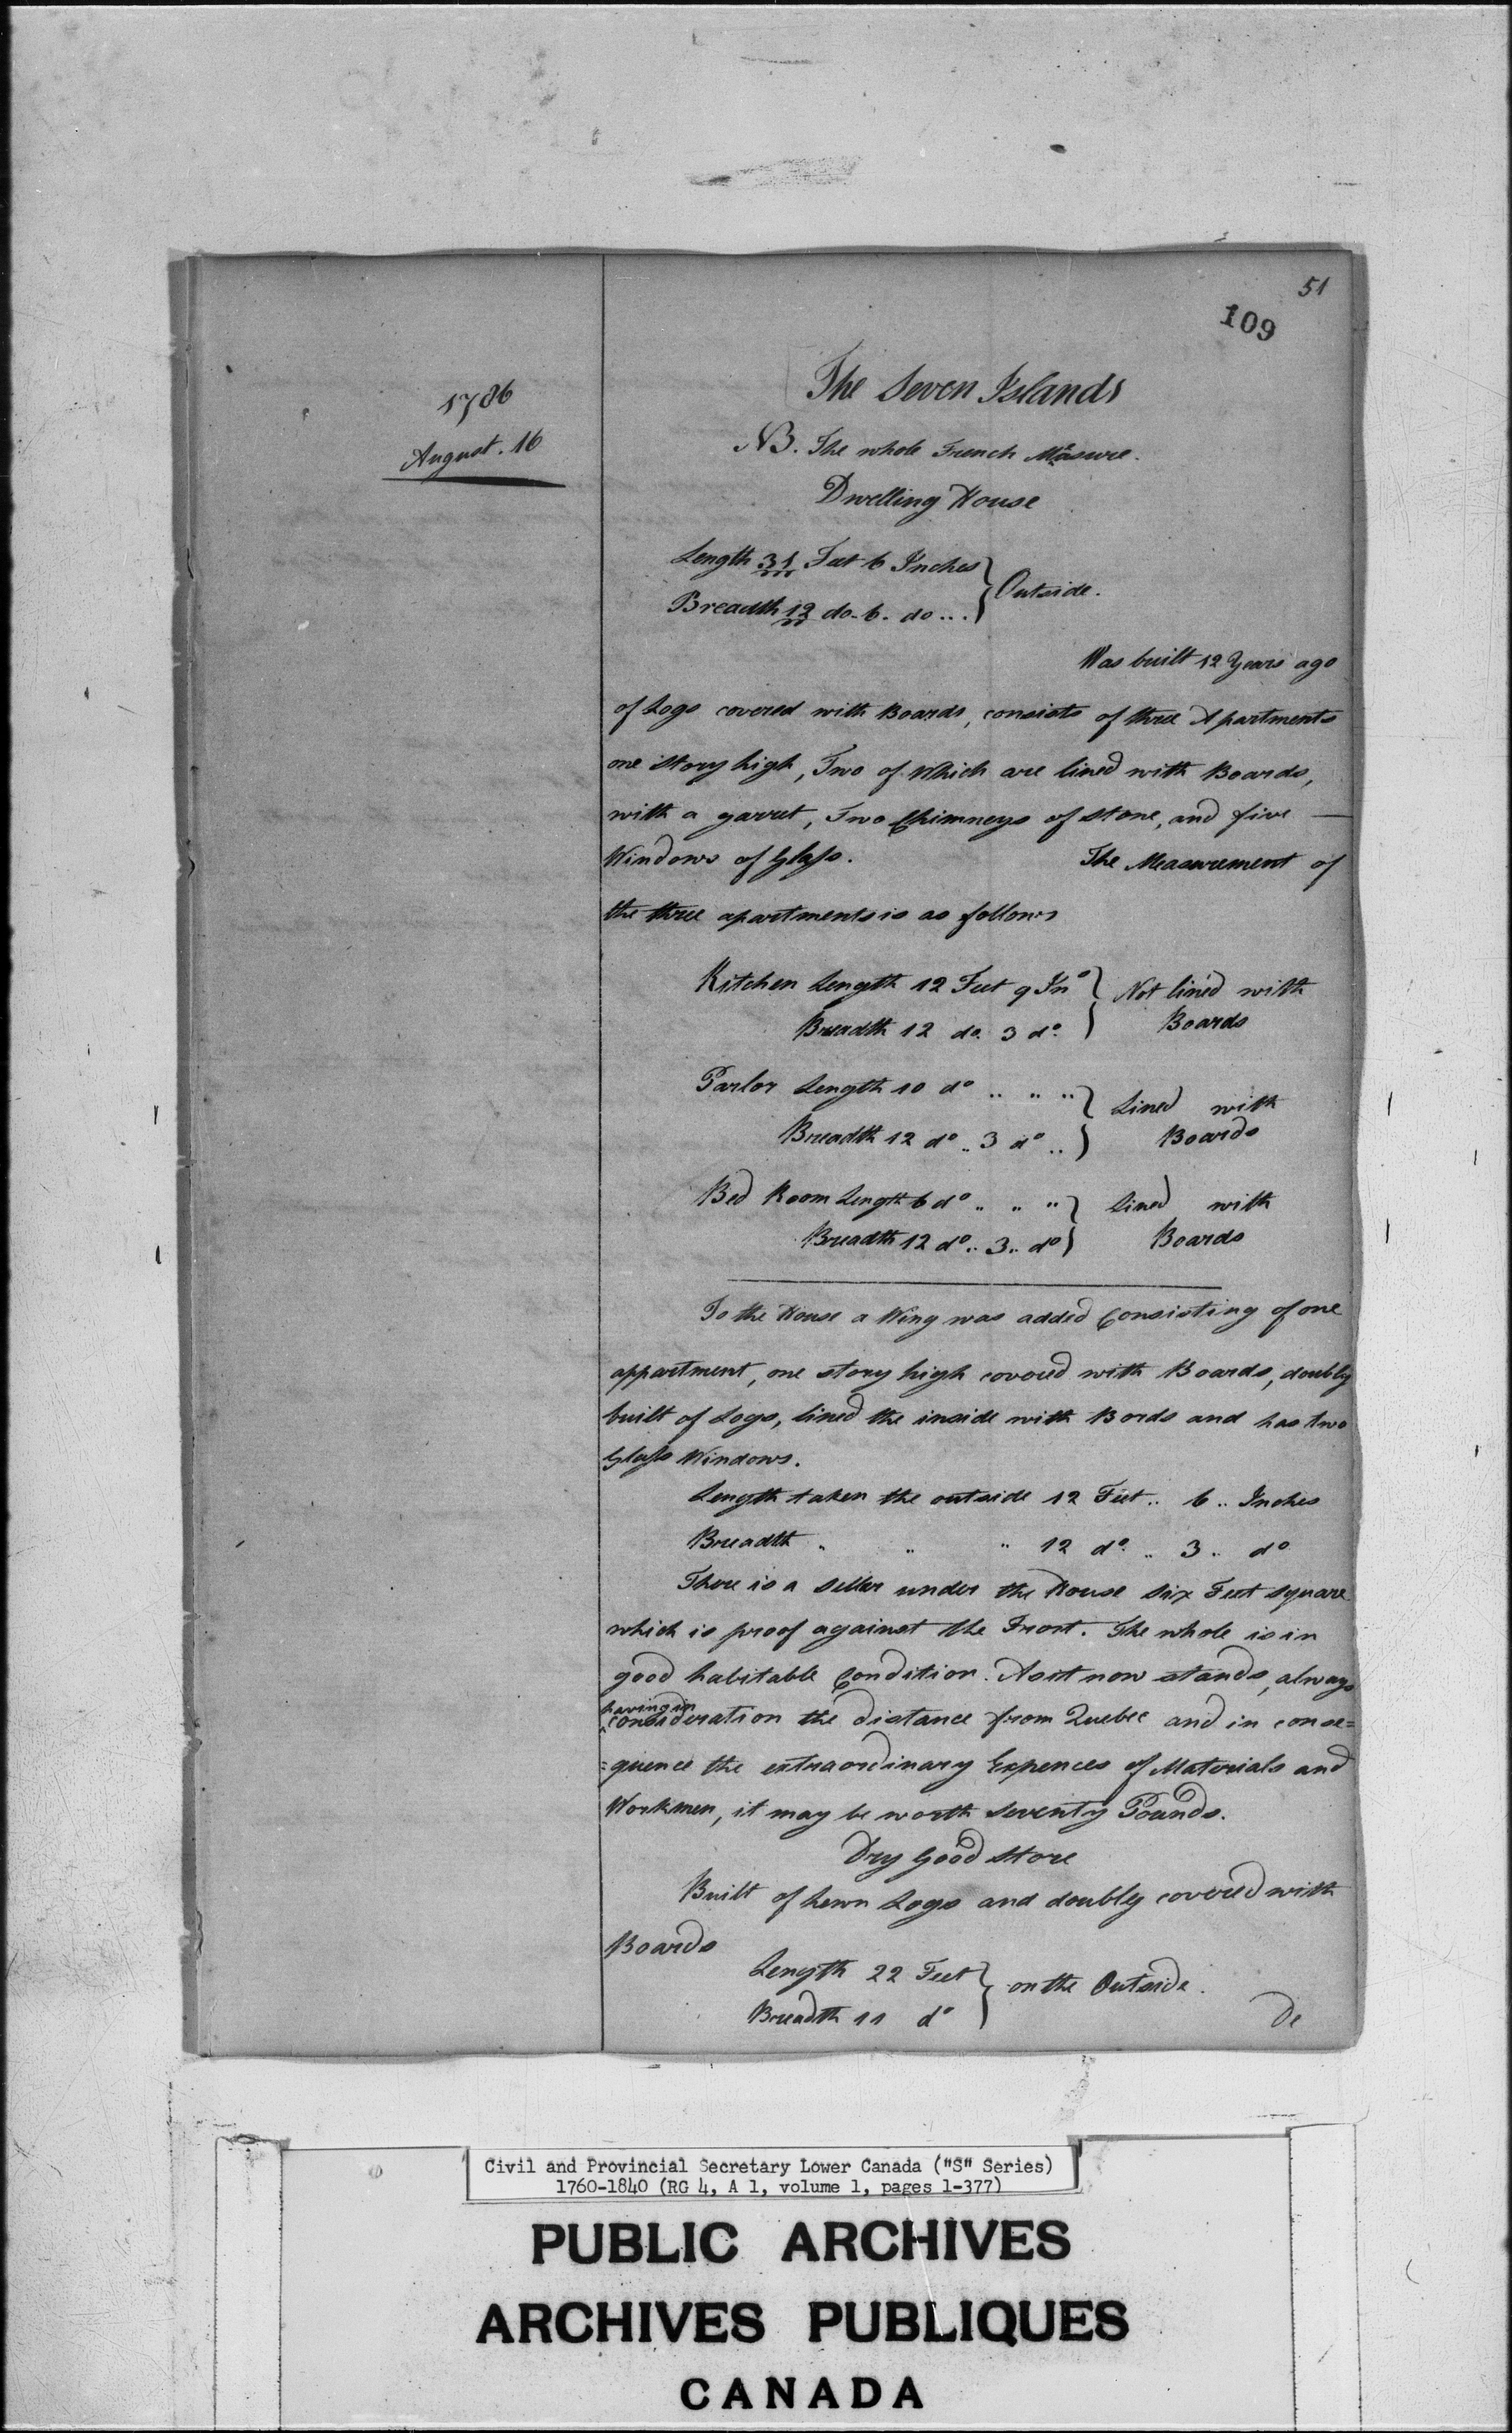 51
109
1786
August. 16
The Seven Islands
NB. The whole French Measure.
Dwelling House
Length 31 Feet 6 Inches } Outside.
Breadth 12 do. 6. do ...
Was built 12 Years ago
of Logs covered with Boards, consists of three Apartments
one Story high, Two of Which are lined with Boards,
with a garret, Two Chimneys of Stone, and five —
Windows of Glass. The Measurement of
the three apartments is as follows
Kitchen Length 12 Feet 9 Ins } Not lined with
Breadth 12 do. 3 do. Boards
Parlor Length 10 do .. .. .. } Lined with
Breadth 12 do .. 3 do .. Boards
Bed Room Length 6 do .. .. .. } Lined with
Breadth 12 do .. 3 .. do Boards
To the House a Wing was added Consisting of one
appartment, one story high covered with Boards, doubly
built of Logs, lined the inside with Bords and has two
Glass Windows.
Length taken the outside 12 Feet .. 6 .. Inches
Breadth " " " 12 do. .. 3 .. do
There is a Seller under the House Six Feet square
which is proof against the Frost. The whole is in
good habitable Condition. As it now stands, always
having in
consideration the distance from Quebec and in conse=
=quence the extraordinary Expences of Materials and
Workmen, it may be worth Seventy Pounds.
Dry Good Store
Built of hewn Logs and doubly covered with
Boards
Length 22 Feet } on the Outside.
Breadth 11 do
De
Civil and Provincial Secretary Lower Canada ("S" Series)
1760-1840 (RG 4, A 1, volume 1, pages 1-377)
PUBLIC ARCHIVES
ARCHIVES PUBLIQUES
CANADA